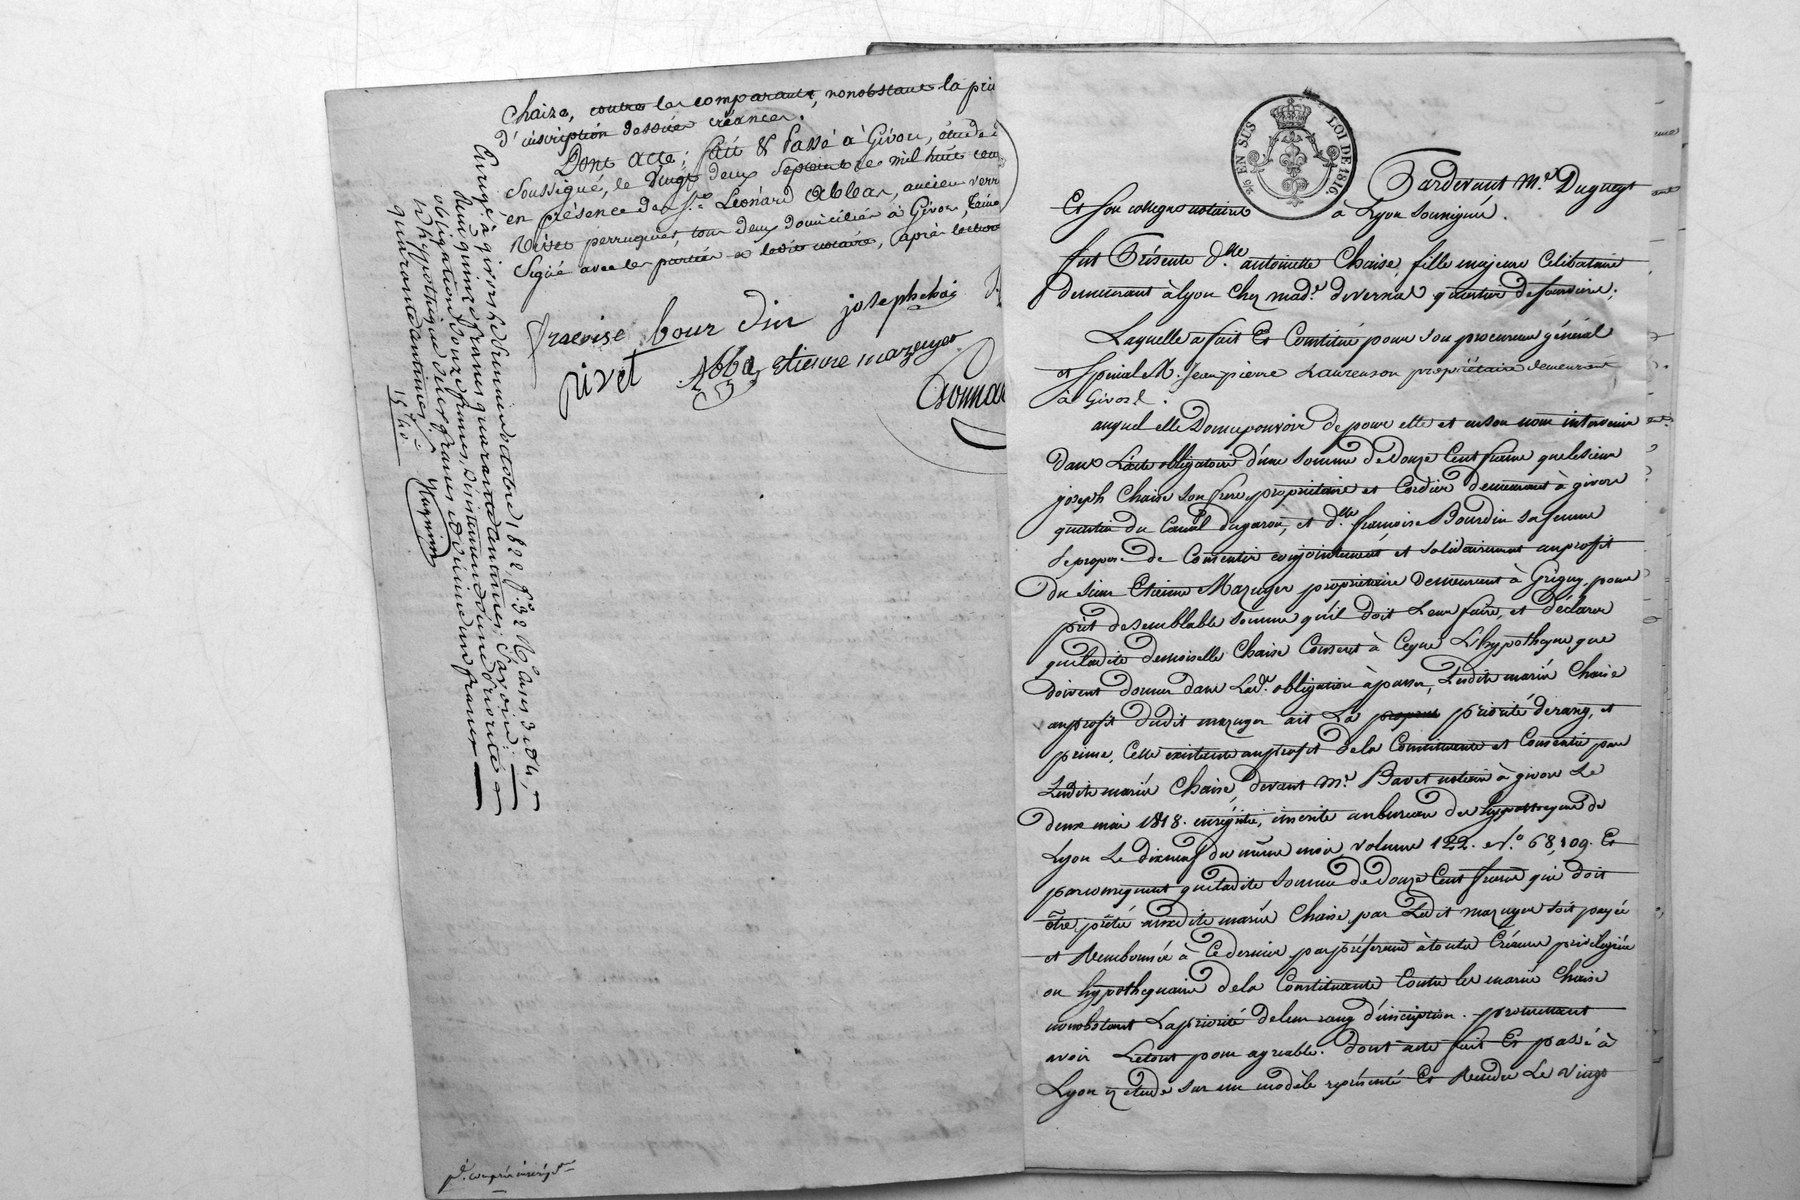 Chaise, contre les comparants, nonobstant la pri
d'inscription desdites créances.
Dont acte; fait & Passé à Givors, étude d
Soussigné, le vingt deux Septembre mil huit cent
en présence des Srs Léonard Abbas, ancien verr
Rivet perruquier, tous deux domiciliés à Givors, témo
Signé avec les parties et ledit notaire, après lecture
francoise bour din josephchai
rivet Abba etienne mazuyer
Enregé à givors le premier octobre 1822, f.° 32 R.° Cases 3 et 4,
Reçu quinze francs quarante centimes; Savoir:
obligation Douze francs, Consentement d'une priorité
d'hypothèque deux francs et dixieme un franc
quarante centimes.
15 f 40
25 EN SUS LOI DE 1816.
Pardevant Me Dugueyt
Et Son collegue notaires à Lyon soussignés.
fut Présente dlle antoinette Chaise, fille majeure Celibataire
demeurant à lyon Chez made devernat quartier de fourviere;
Laquelle a fait Et Constitué pour son procureur général
et spécial M. Jean pierre Laurenson propriétaire demeurant
à Givors.
auquel elle Donne pouvoir de pour elle et en son nom intervenir
dans L'acte obligatoire d'une somme de Douze Cent francs que le sieur
joseph Chaise son frere propriétaire et Cordier demeurant à givors
quartier du Canal dugarou, et dlle francoise Bourdin sa femme
se propose de Consentir conjointement et solidairement au profit
du sieur Etienne Mazuyer propriétaire Demeurant à Grigny, pour
prêt de semblable somme qu'il doit Leur faire, et déclarer
que ladite demoiselle Chaise Consent à Ceque L'hypotheque que
doivent donner dans Lade obligation à passer, Lesdits mariés Chaise
au profit dudit mazuyer ait La priorité de rang, et
prime, Celle existante au profit de la Constituante et Consentie par
Lesdits mariés Chaise, devant Me Bavet notaire à givors Le
deux mai 1818. enregistré, inscrite au bureau des hypotheques de
Lyon Le dixneuf du même mois volume 122. N.° 68,109. Et
par consequent que ladite somme de Douze Cent francs qui doit
être prêtée auxdits mariés Chaise par Ledit mazuyer soit payée
et Remboursée à Ce dernier par préférence à toute Créance privilegiée
ou hypothequaire de la Constituante Contre les mariés Chaise
nonobstant La priorité de leur rang d'inscription. promettant
avoir Le tout pour agréable. Dont acte fait Et passé à
Lyon en étude sur un modèle représenté Et Rendu Le vingt